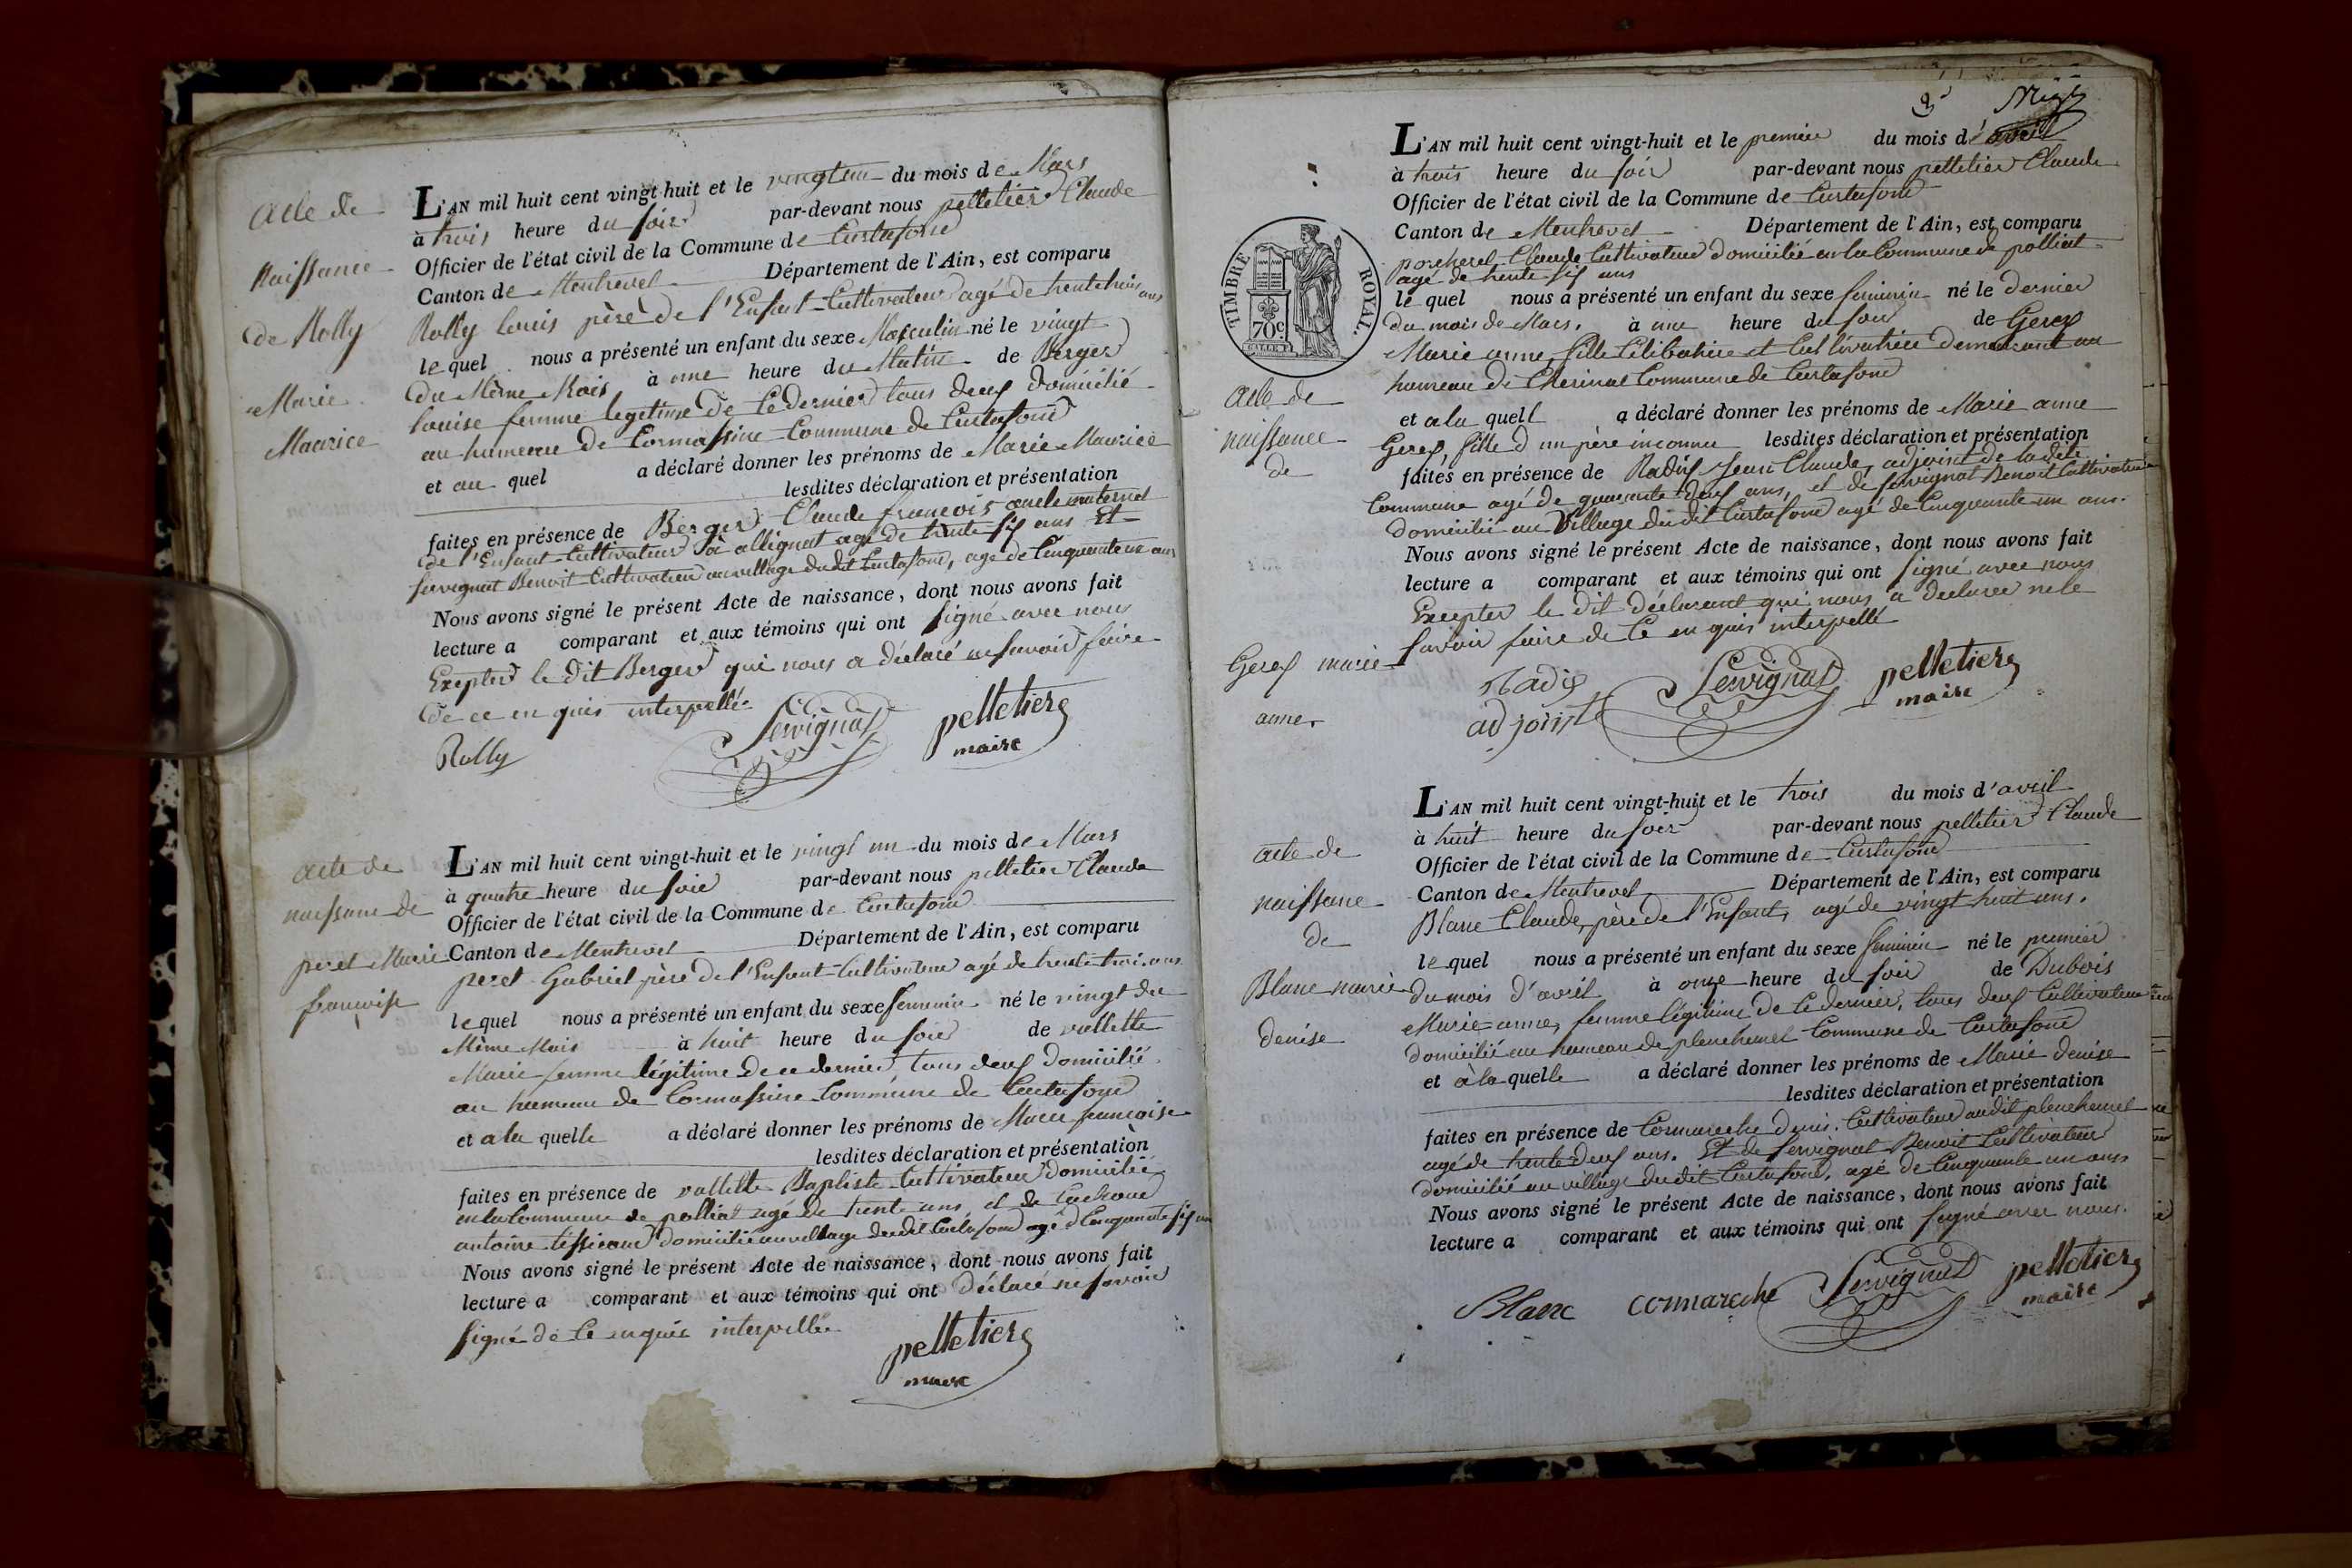 Acte de
Naissance
de Rolly
Marie
Maurice
L'AN mil huit cent vingt-huit et le vingt un du mois de Mars
à trois heure du soir par-devant nous pelletier Claude
Officier de l'état civil de la Commune de Curtafond
Canton de Montrevel Département de l'Ain, est comparu
Rolly louis père de l'Enfant Cultivateur agé de trente trois ans
lequel nous a présenté un enfant du sexe Masculin né le vingt
du Même Mois à une heure du Matin de Berger
louise femme legitime de ce dernier tous deux domicilié
au hameau de Cormassine Commune de Curtafond
et au quel a déclaré donner les prénoms de Marie Maurice
lesdites déclaration et présentation
faites en présence de Berger Claude françois oncle maternel
de l'Enfant Cultivateur à attignat agé de trente six ans Et
servignat Benoit Cultivateur au village dudit Curtafond, agé de Cinquante un ans
Nous avons signé le présent Acte de naissance, dont nous avons fait
lecture a comparant et aux témoins qui ont signé avec nous
Excepter le dit Berger qui nous a déclaré ne savoir faire
de ce en quis interpellé.
Rolly Servignat pelletier
maire
acte de
naissance de
peret Marie
françoise
L'AN mil huit cent vingt-huit et le vingt un du mois de Mars
à quatre heure du soir par-devant nous pelletier Claude
Officier de l'état civil de la Commune de Curtafond
Canton de Montrevel Département de l'Ain, est comparu
peret Gabriel père de l'Enfant Cultivateur agé de trente trois ans
lequel nous a présenté un enfant du sexe feminin né le vingt du
Même Mois à huit heure du soir de vallette
Marie femme légitime de ce dernier, tous deux domicilié
au hameau de Cormassine Commune de Curtafond
et a la quelle a déclaré donner les prénoms de Marie francoise
lesdites déclaration et présentation
faites en présence de vallette Baptiste Cultivateur domicilié
en la Commune de polliat agé de trente ans, et de
antoine tissierand domicilié au village dudit Curtafond agé d Cinquante six ans
Nous avons signé le présent Acte de naissance, dont nous avons fait
lecture a comparant et aux témoins qui ont déclaré ne savoir
signé de Ce enquis interpellée
pelletier
maire
TIMBRE ROYAL.
70c
Acte de
naissance
de
Gerex marie
anne
L'AN mil huit cent vingt-huit et le premier du mois d'avril
à trois heure du soir par-devant nous pelletier Claude
Officier de l'état civil de la Commune de Curtafond
Canton de Montrevel Département de l'Ain, est comparu
porcherel Claude Cultivateur domicilié en la Commune de polliat
agé de trente six ans
lequel nous a présenté un enfant du sexe feminin né le dernier
du mois de Mars, à une heure du soir de Gerex
Marie anne, fille Célibataire et Cultivatrice demeurant au
hameau de Commune de Curtafond
et a la quell a déclaré donner les prénoms de Marie anne
Gerex, fille d un père inconnu lesdites déclaration et présentation
faites en présence de Radix Jean Claude, adjoint de la dite
Commune agé de quarante deux ans, et de servignat Benoit Cultivateur
domicilié au Village dudit Curtafond agé de Cinquante un ans.
Nous avons signé le présent Acte de naissance, dont nous avons fait
lecture a comparant et aux témoins qui ont signé avec nous
Excepter le dit déclarant qui nous a declarer ne le
savoir faire de Ce en quis interpellé
Radix Servignat pelletier
adjoint maire
acte de
naissance
de
Blanc marie
denise
L'AN mil huit cent vingt-huit et le trois du mois d'avril
à huit heure du soir par-devant nous pelletier Claude
Officier de l'état civil de la Commune de Curtafond
Canton de Montrevel Département de l'Ain, est comparu
Blanc Claude, père de l'Enfant, agé de vingt huit ans.
lequel nous a présenté un enfant du sexe feminin né le premier
du mois d'avril à onze heure du soir de Dubois
Marie anne, femme légitime de Ce dernier, tous deux Cultivateur
domicilié au hameau de planchemel Commune de Curtafond
et à la quelle a déclaré donner les prénoms de Marie denise
lesdites déclaration et présentation
faites en présence de Cormareche denis, Cultivateur audit planchemel
agé de trente deux ans. Et de Servignat Benoit Cultivateur
domicilié au village dudit Curtafond, agé de Cinquante un ans
Nous avons signé le présent Acte de naissance, dont nous avons fait
lecture a comparant et aux témoins qui ont signé avec nous.
Blanc cormareche Servignat pelletier
maire